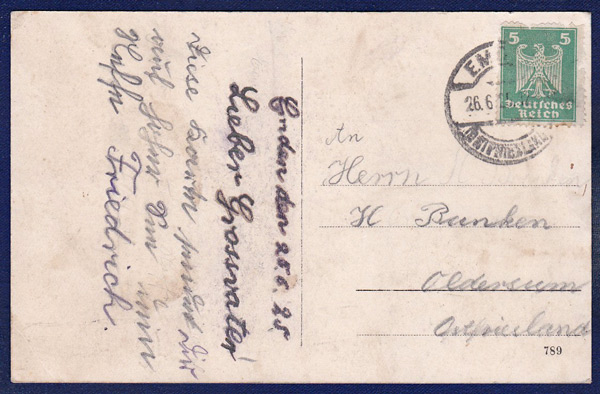 Emden den 25.6.25
Lieber Grossvater!
Diese Karte sendet Dir
und Dein
Friedrich.
5 5
Deutsches
Reich
EM
26.6
An
Herrn
H Bunken
Oldersum
Ostfriesland
789